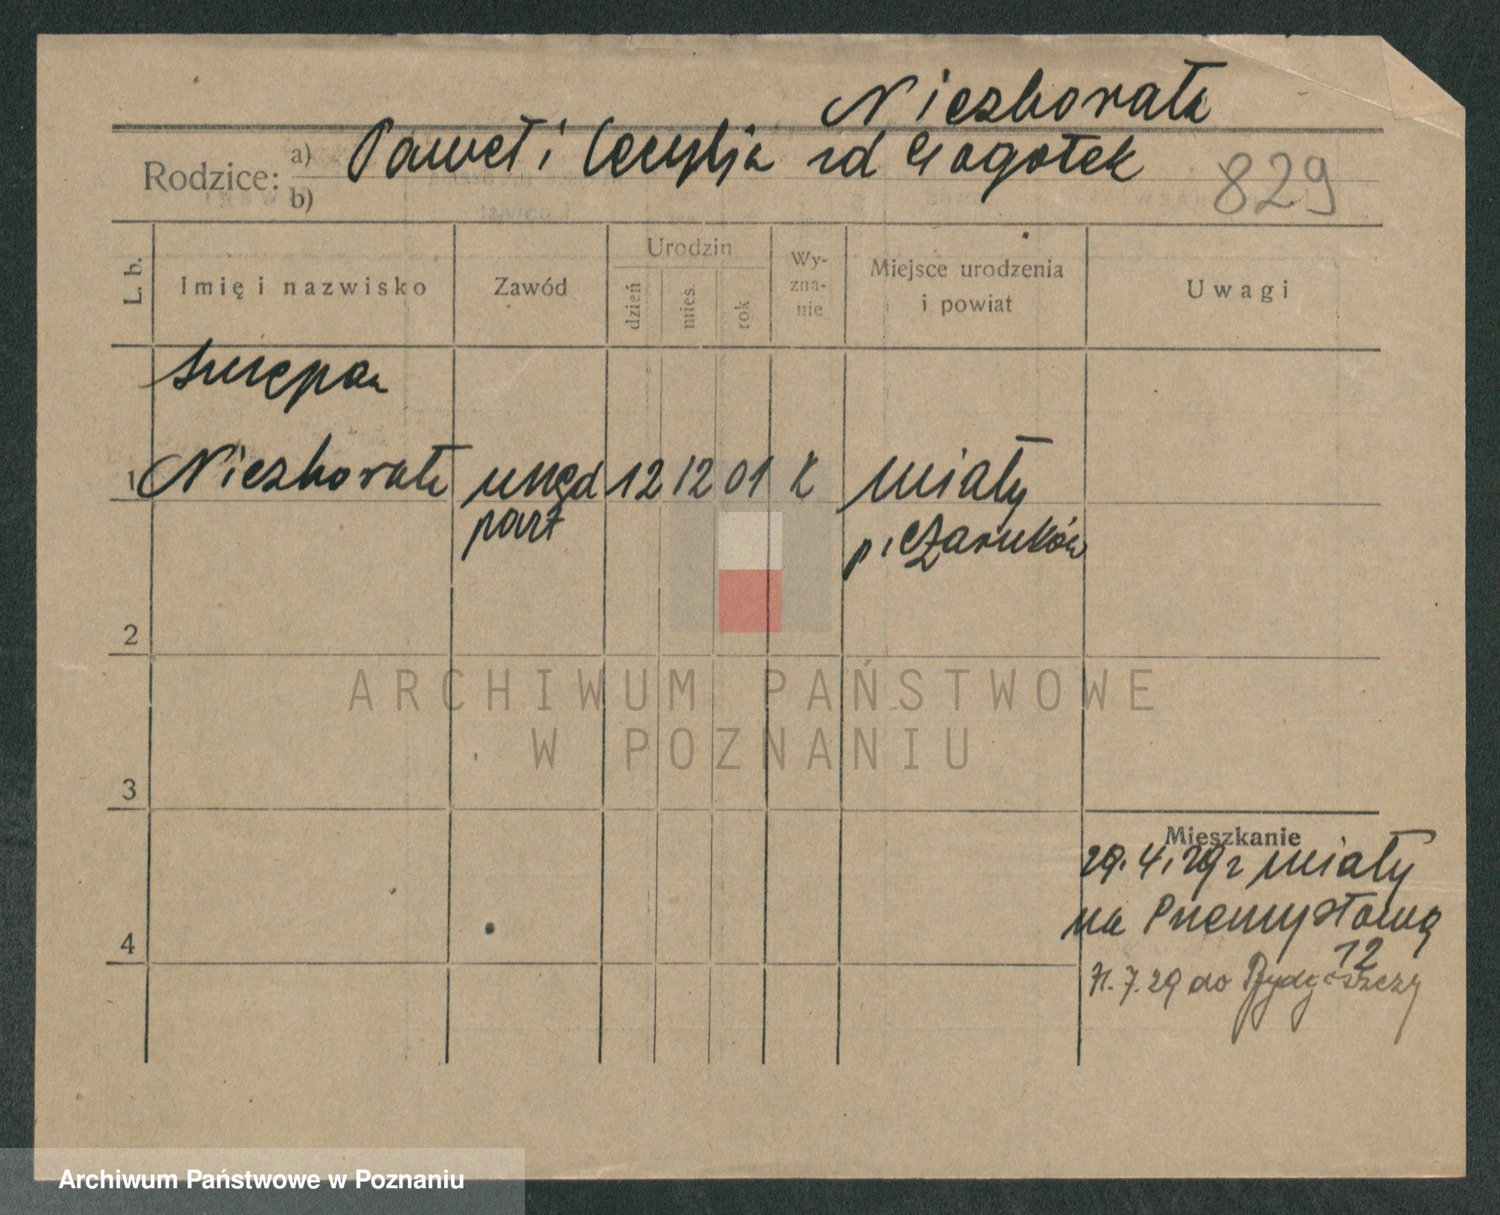 Niezborała
Rodzice: a) Paweł i Cecylja zd Gogołek
b)
829
L. b.
Imię i nazwisko
Zawód
Urodzin
dzień
mies.
rok
Wy-
zna-
nie
Miejsce urodzenia
i powiat
Uwagi
Szczepan
1 Niezborała urzęd 12 12 01 k Miały
poczt p. Czarnków
2
ARCHIWUM PAŃSTWOWE
W POZNANIU
3
Mieszkanie
29.4.29 z Miały
na Przemysłową
12
31.7.29 do Bydgoszczy
4
Archiwum Państwowe w Poznaniu